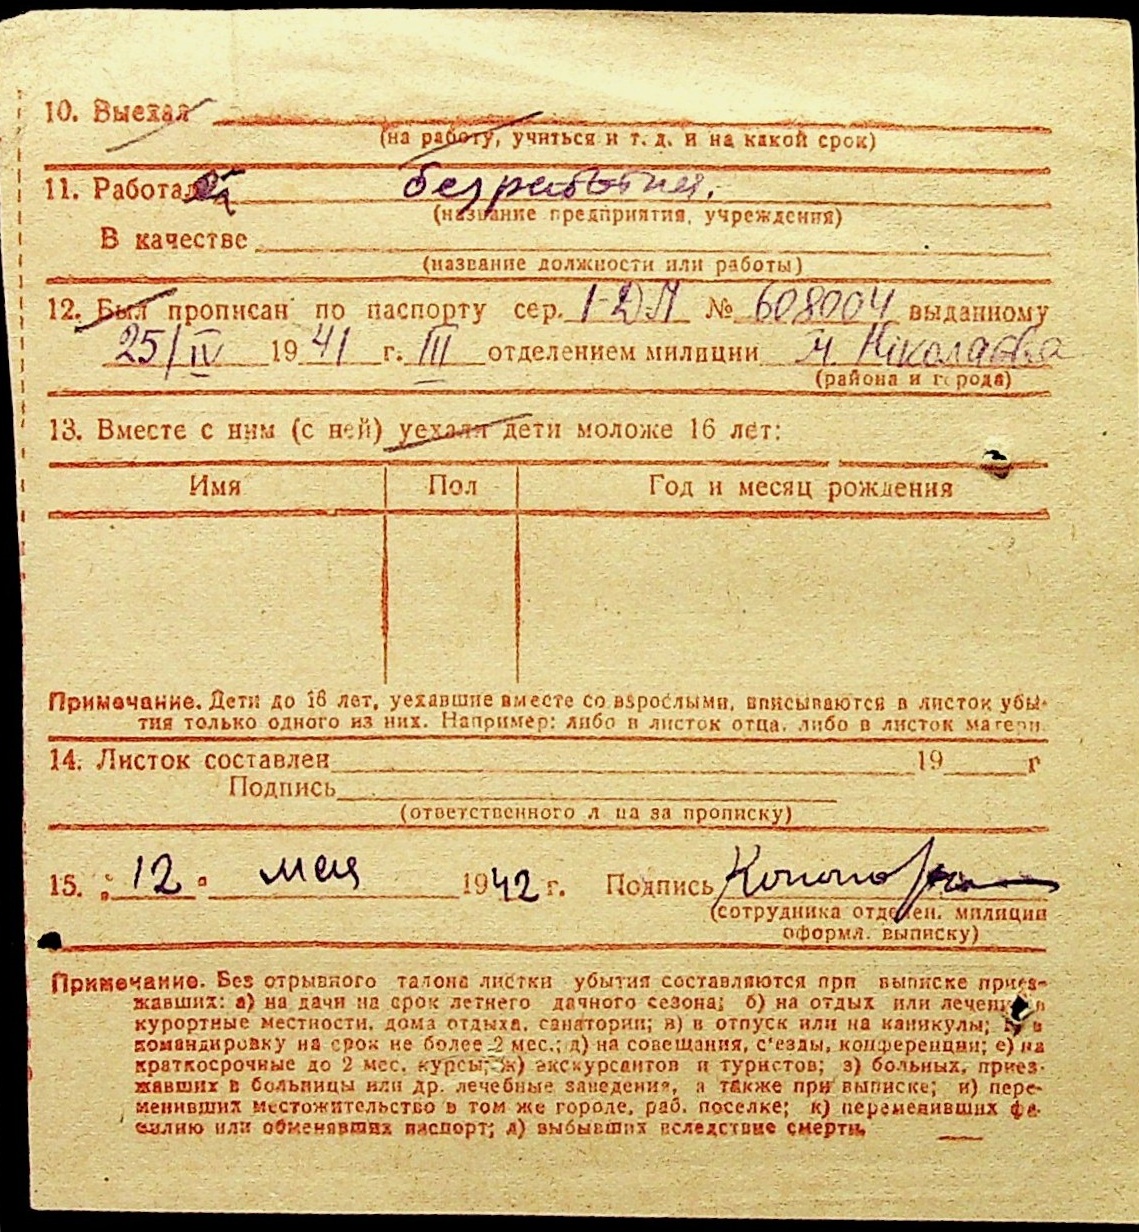 10. Выехал
(на работу, учиться и т. д. и на какой срок)
11. Работа безработная.
(название предприятия, учреждения)
В качестве
(название должности или работы)
12. Был прописан по паспорту сер. І-ДЛ № 608004 выданному
25/IV 1941 г. III отделением милиции м. Ніколаєва
(района и города)
13. Вместе с ним (с ней) уехали дети моложе 16 лет:
Имя Пол Год и месяц рождения
Примечание. Дети до 16 лет, уехавшие вместе со взрослыми, вписываются в листок убы-
тия только одного из них. Например: либо в листок отца, либо в листок матери.
14. Листок составлен 19 г
Подпись
(ответственного л ца за прописку)
15. „12" мая 1942 г. Подпись
(сотрудника отделен. милиции
оформл. выписку)
Примечание. Без отрывного талона листки убытия составляются при выписке приез-
жавших: а) на дачи на срок летнего дачного сезона; б) на отдых или лечение в
курортные местности, дома отдыха, санатории; в) в отпуск или на каникулы; г) в
командировку на срок не более 2 мес.; д) на совещания, с'езды, конференции; е) на
краткосрочные до 2 мес. курсы; ж) экскурсантов и туристов; з) больных, приез-
жавших в больницы или др. лечебные заведения, а также при выписке; и) пере-
менивших местожительство в том же городе, раб. поселке; к) переменивших фа-
милию или обменявших паспорт; л) выбывших вследствие смерти.